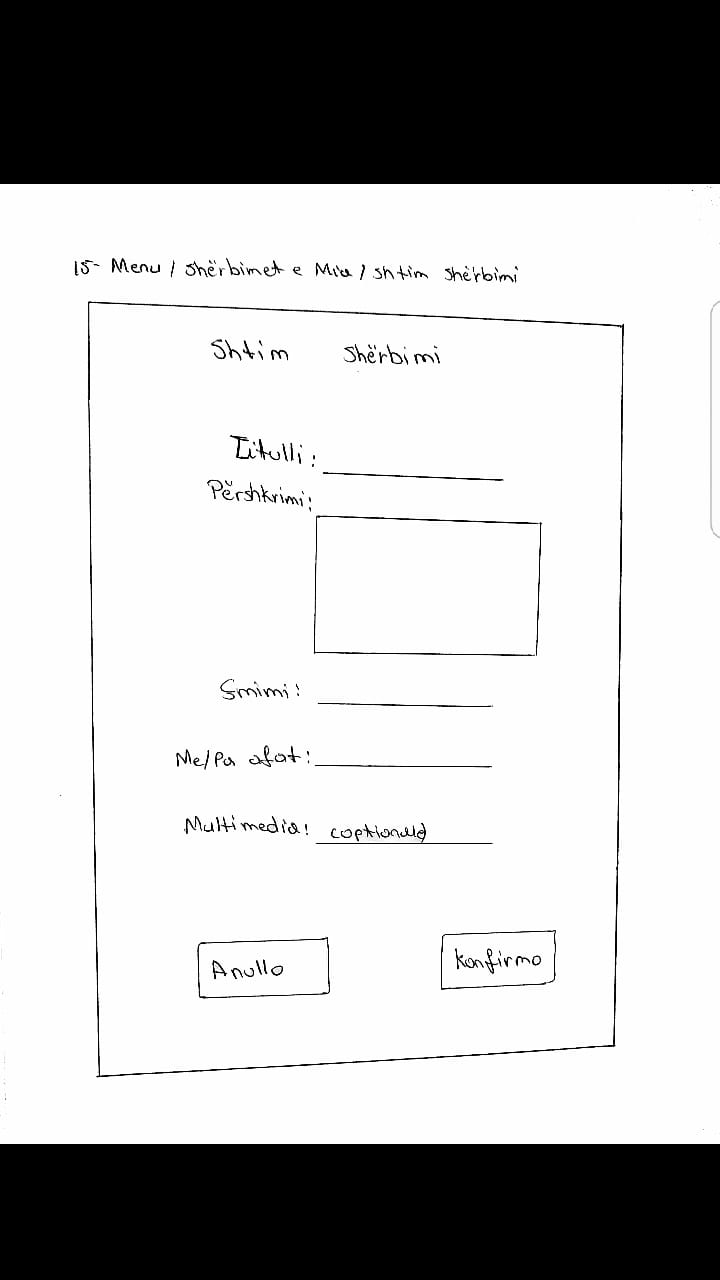 15- Menu / Shërbimet e Mia / Shtim Shërbimi
Shtim Shërbimi
Titulli:
Përshkrimi:
Çmimi:
Me/Pa afat:
Multimedia: (optional)
Anullo
Konfirmo